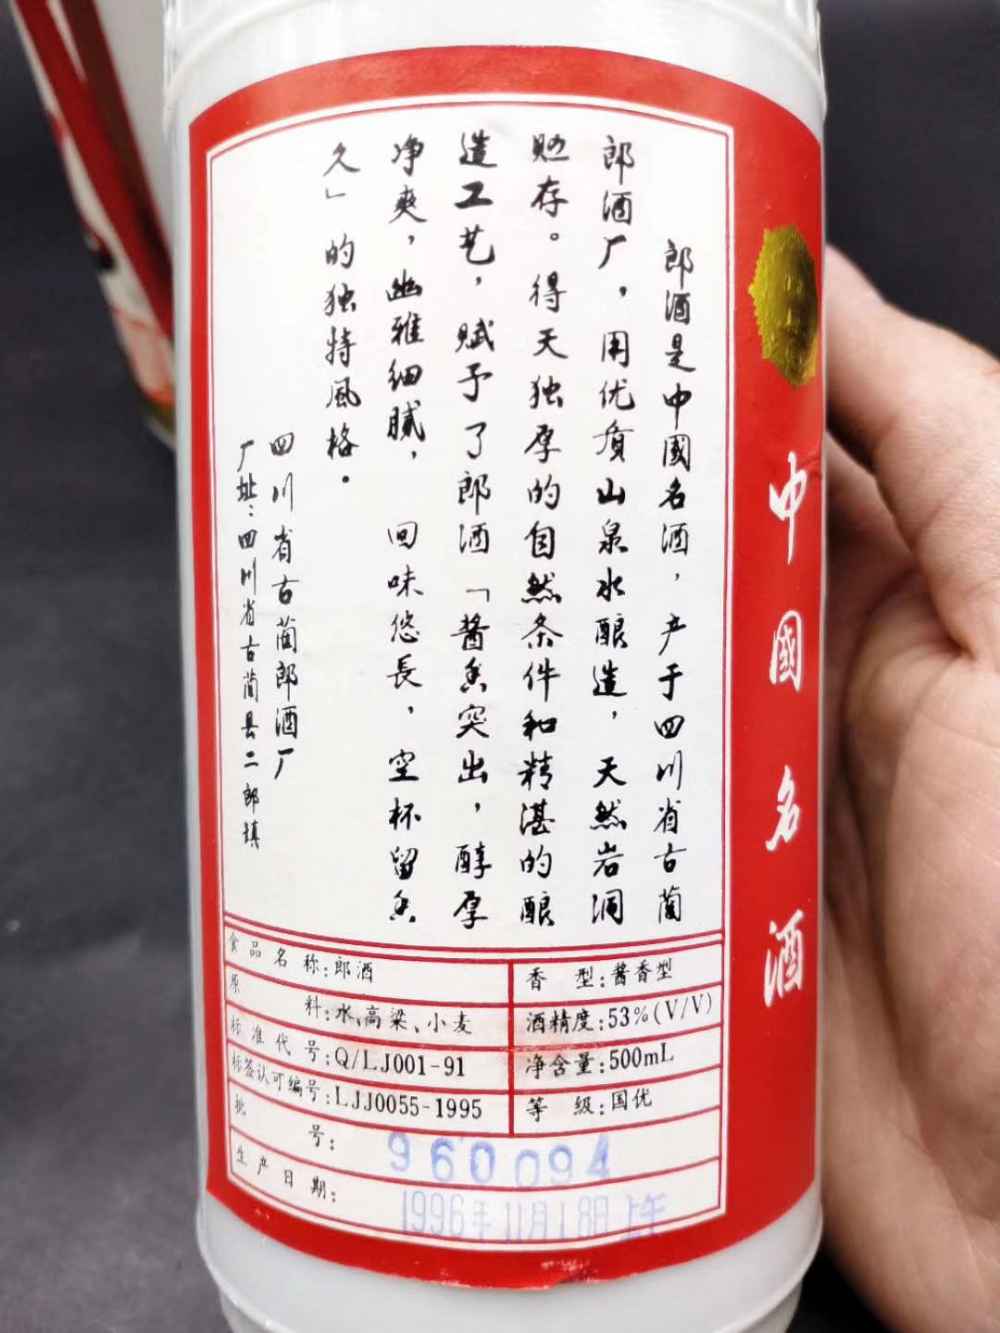 中國名酒
郎酒是中國名酒，产于四川省古蔺
郎酒厂，用优质山泉水酿造，天然岩洞
贮存。得天独厚的自然条件和精湛的酿
造工艺，赋予了郎酒「酱香突出，醇厚
净爽，幽雅细腻，回味悠長，空杯留香
久」的独特風格。
四川省古蔺郎酒厂
厂址：四川省古蔺县二郎镇
食品名称：郎酒
香型：酱香型
原料：水、高粱、小麦
酒精度：53%(V/V)
标准代号：Q/LJ001-91
净含量：500mL
标签认可编号：LJJ0055-1995
等级：国优
批号：960094
生产日期：1996年11月18日 上午